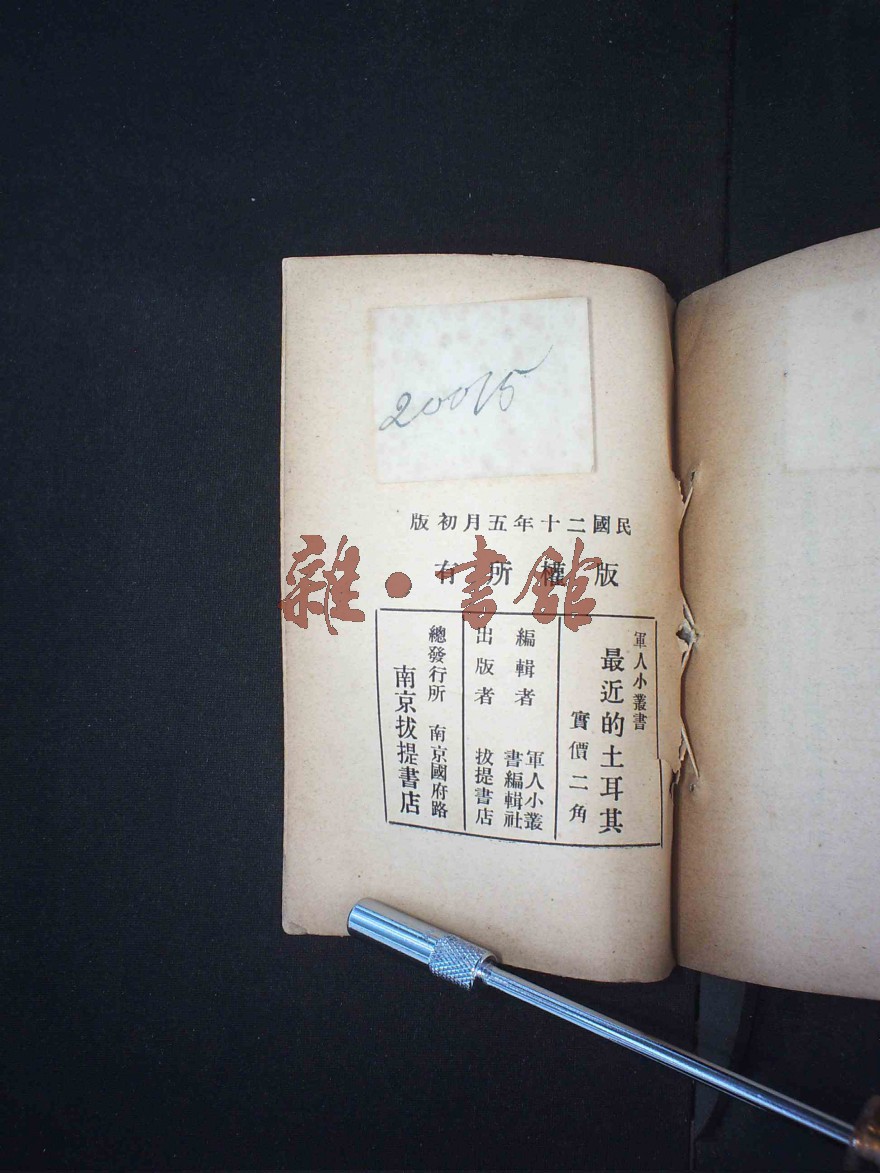 20015
民國二十年五月初版
版權所有
雜·書館
軍人小叢書
最近的土耳其
實價二角
編輯者 軍人小叢書編輯社
出版者 拔提書店
總發行所 南京國府路
南京拔提書店